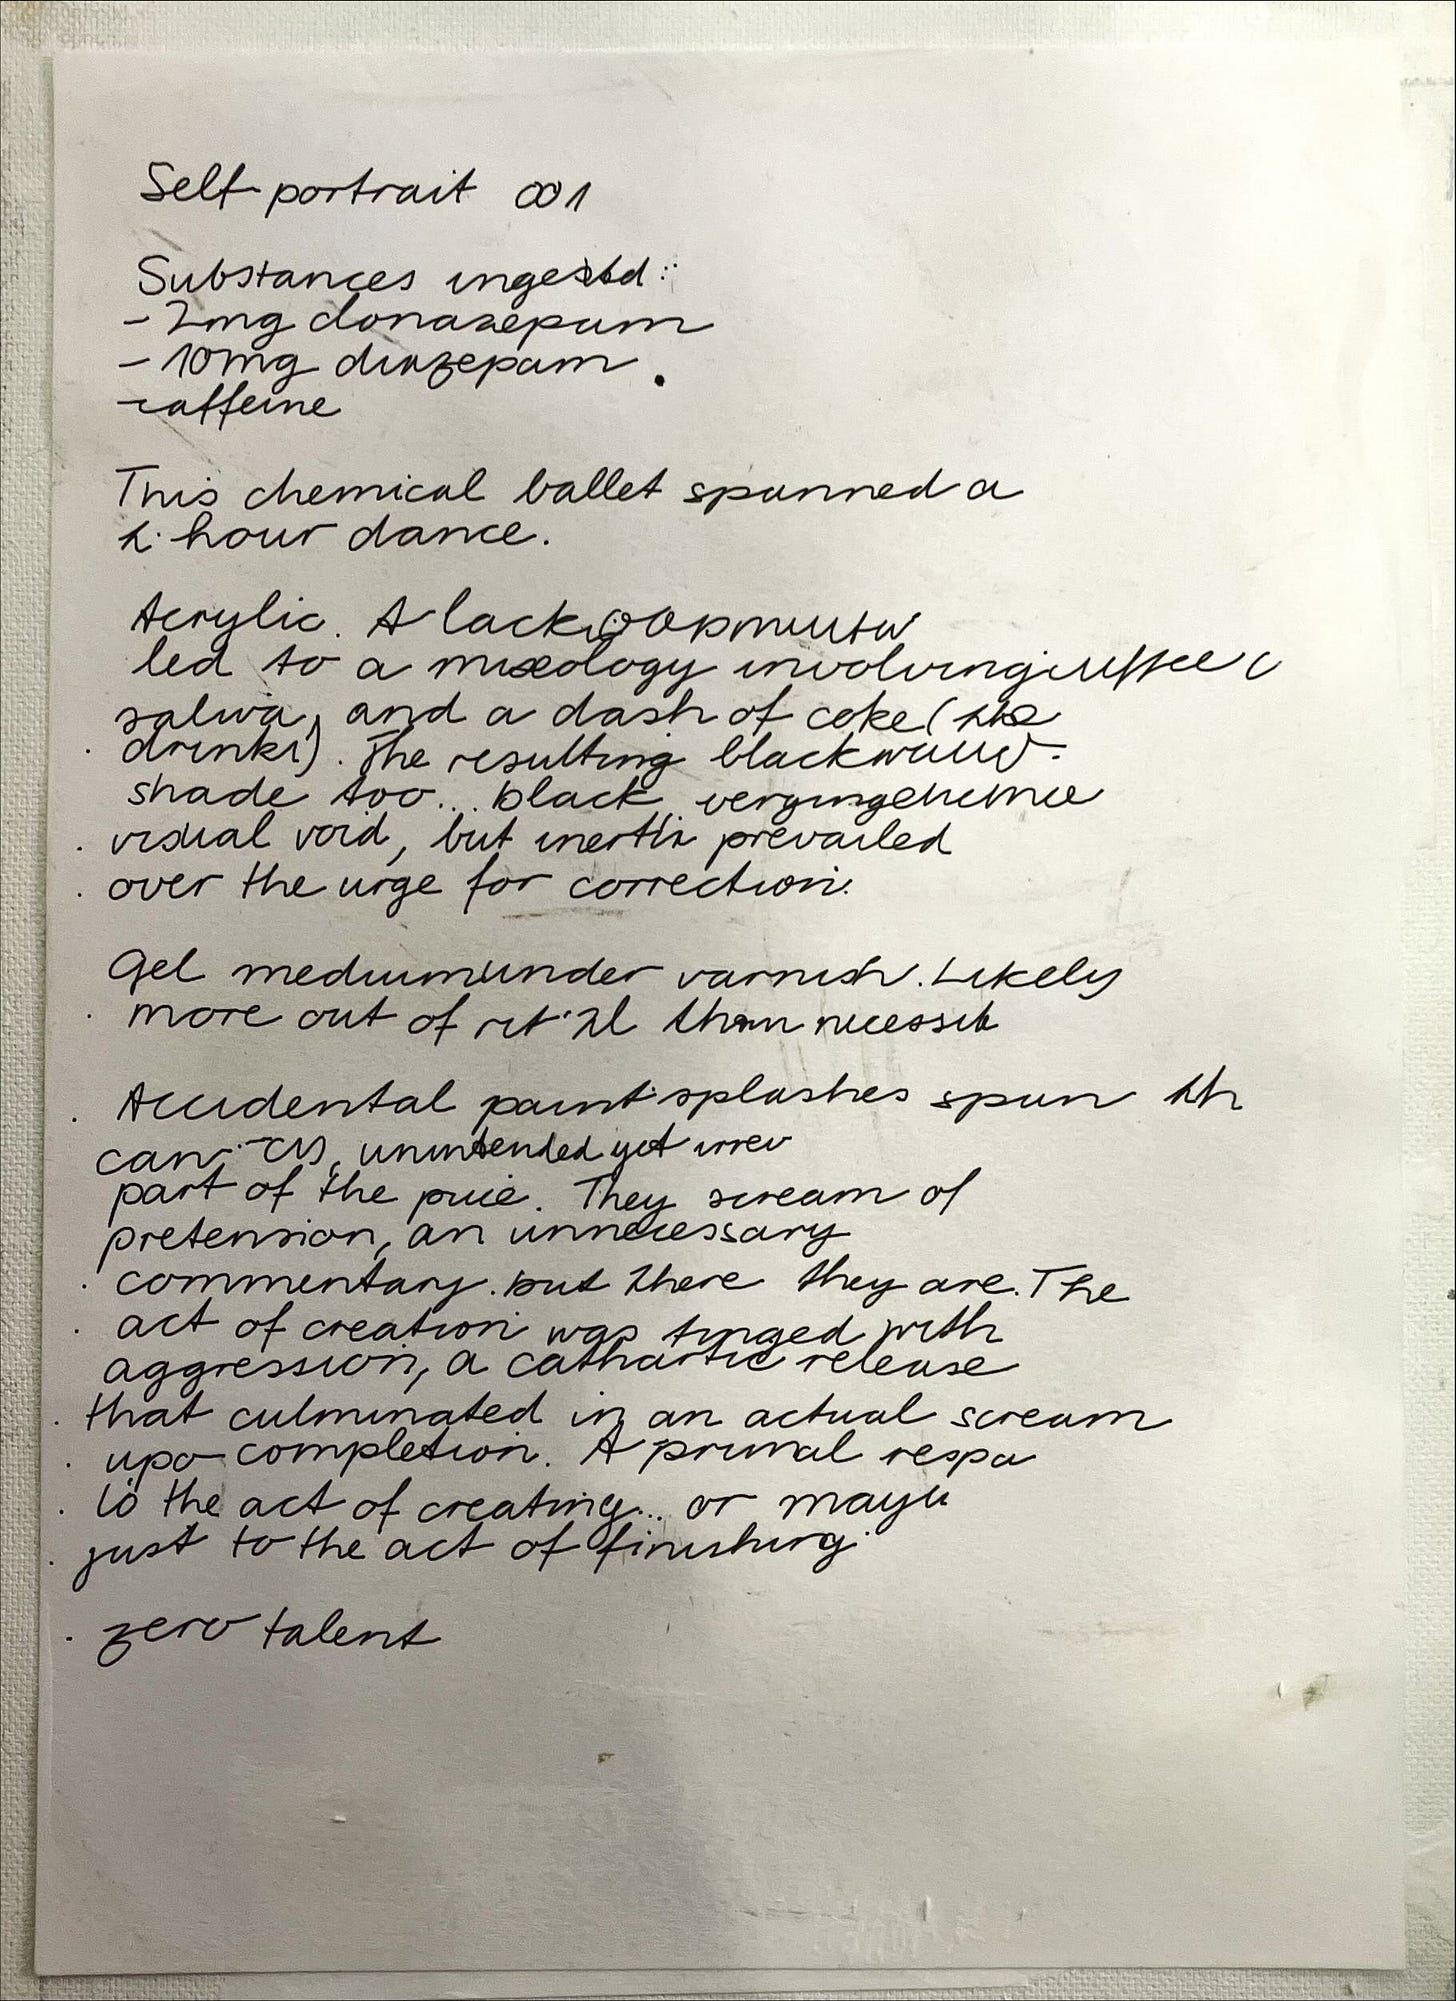 Self-portrait 001
Substances ingested:
- 2mg clonazepam
- 10mg diazepam
- caffeine
This chemical ballet spanned a
hour dance.
Acrylic. A lack
led to a mixology involving
saliva, and a dash of coke (the
drink). The resulting black
shade too... black, verging
visual void, but inertia prevailed
over the urge for correction.
Gel medium under varnish. Likely
more out of than
Accidental paint splashes span th
unintended yet
part of the They scream of
pretension, an unnecessary
commentary. but there they are. The
act of creation was tinged with
aggression, a cathartic release
that culminated in an actual scream
upo completion. A primal respo
to the act of creating... or
just to the act of finishing
zero talent